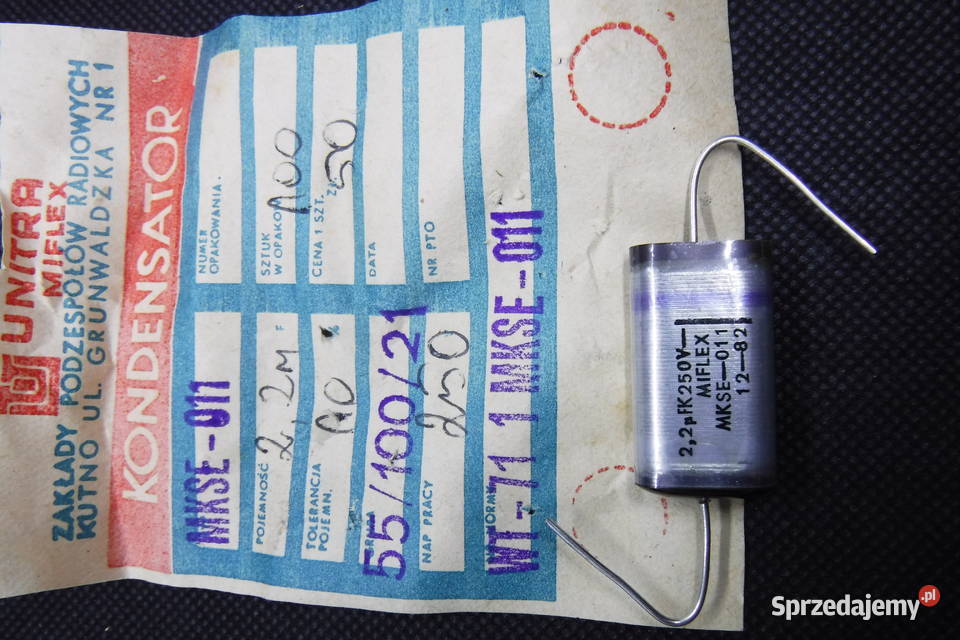 UNITRA
MIFLEX
ZAKŁADY PODZESPOŁÓW RADIOWYCH
KUTNO UL. GRUNWALDZKA NR 1
KONDENSATOR
MKSE-011
NUMER
OPAKOWANIA.
POJEMNOŚĆ 2,2M F
SZTUK
W OPAKOW. 100
TOLERANCJA
POJEMN. 10 %
CENA 1 SZT. ZŁ 50
55/100/21
DATA
NAP PRACY 250
NR PTO
NORMA
WT-71 1 MKSE-011
2,2µFK250V—
MIFLEX
MKSE—011
12—82
Sprzedajemy.pl